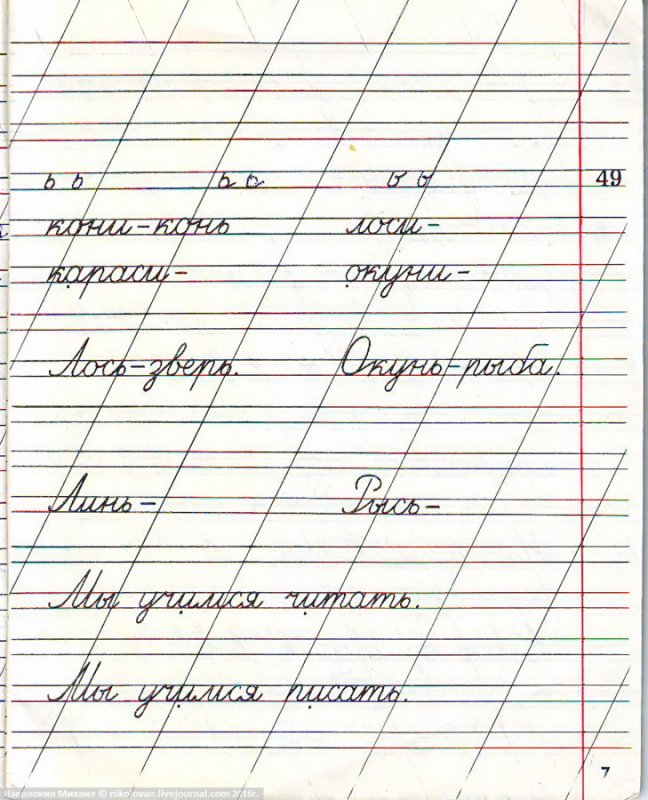 ь ь ь ь ь ь 49
кони – конь лоси –
караси – окуни –
Лось – зверь. Окунь – рыба.
Линь – Рысь –
Мы учимся читать.
Мы учимся писать.
7
Наволокин Михаил © nikolovan.livejournal.com 2016г.